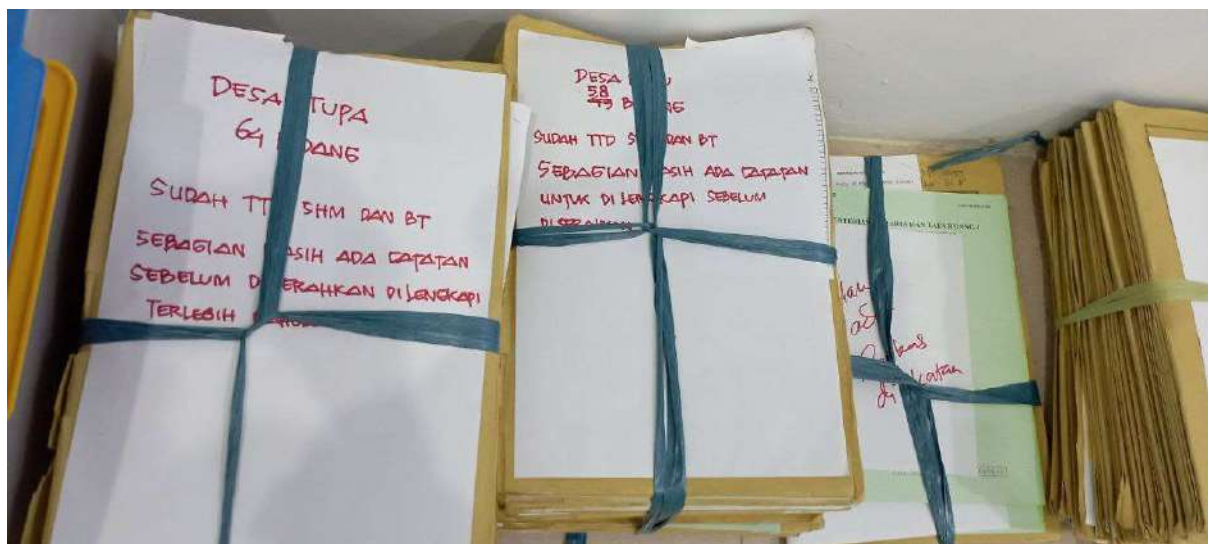 DESA TUPA
64 BIDANG
SUDAH TTD SHM DAN BT
SEBAGIAN MASIH ADA CATATAN
SEBELUM DISERAHKAN DILENGKAPI
TERLEBIH
DESA
58
49 BIDANG
SUDAH TTD SHM DAN BT
SEBAGIAN MASIH ADA CATATAN
UNTUK DI LENGKAPI SEBELUM
DISERAHKAN
DAN TATA RUANG